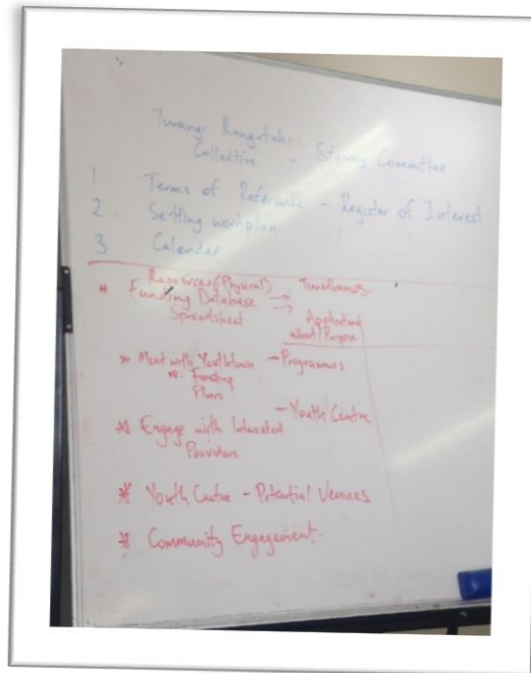 Turangi Rangatahi
Collective - Steering Committee
1 Terms of Reference - Register of Interests
2 Setting workplan
3 Calendar
Resources (Physical)
* Funding Database → Timeframes.
Spreadsheet → Applications
What / Purpose
* Meet with Youthtown - Programmes
re: Funding
Plan
- Youth Centre
* Engage with Interested
Providers
* Youth Centre - Potential Venues
* Community Engagement.